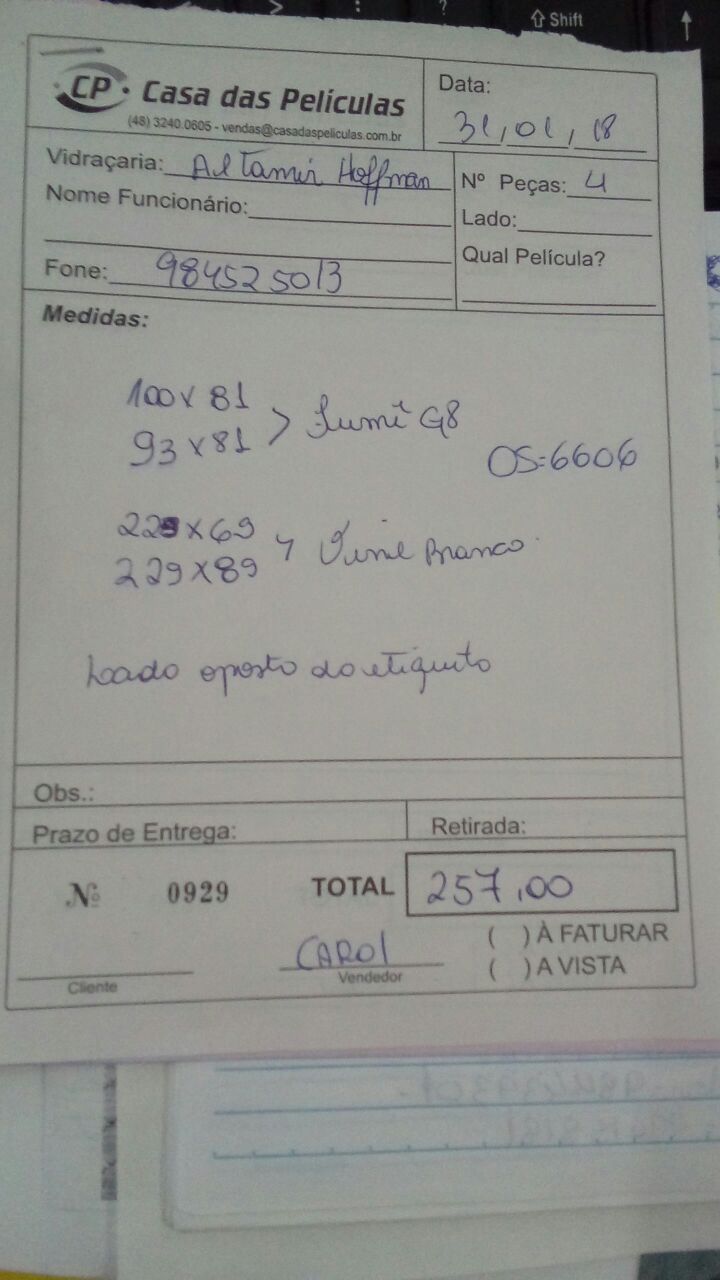 ⇧ Shift
CP · Casa das Películas
(48) 3240.0605 - vendas@casadaspeliculas.com.br
Data:
31, 01, 18
Vidraçaria: Altamir Hoffman
Nome Funcionário:
Fone: 984525013
Nº Peças: 4
Lado:
Qual Película?
Medidas:
100 x 81
93 x 81 > Fumê G8
OS=6606
229 x 69
229 x 89 > Vinil Branco
Lado oposto do etiquito
Obs.:
Prazo de Entrega:
Retirada:
Nº 0929
TOTAL 257,00
CAROL
Cliente
Vendedor
( ) À FATURAR
( ) A VISTA